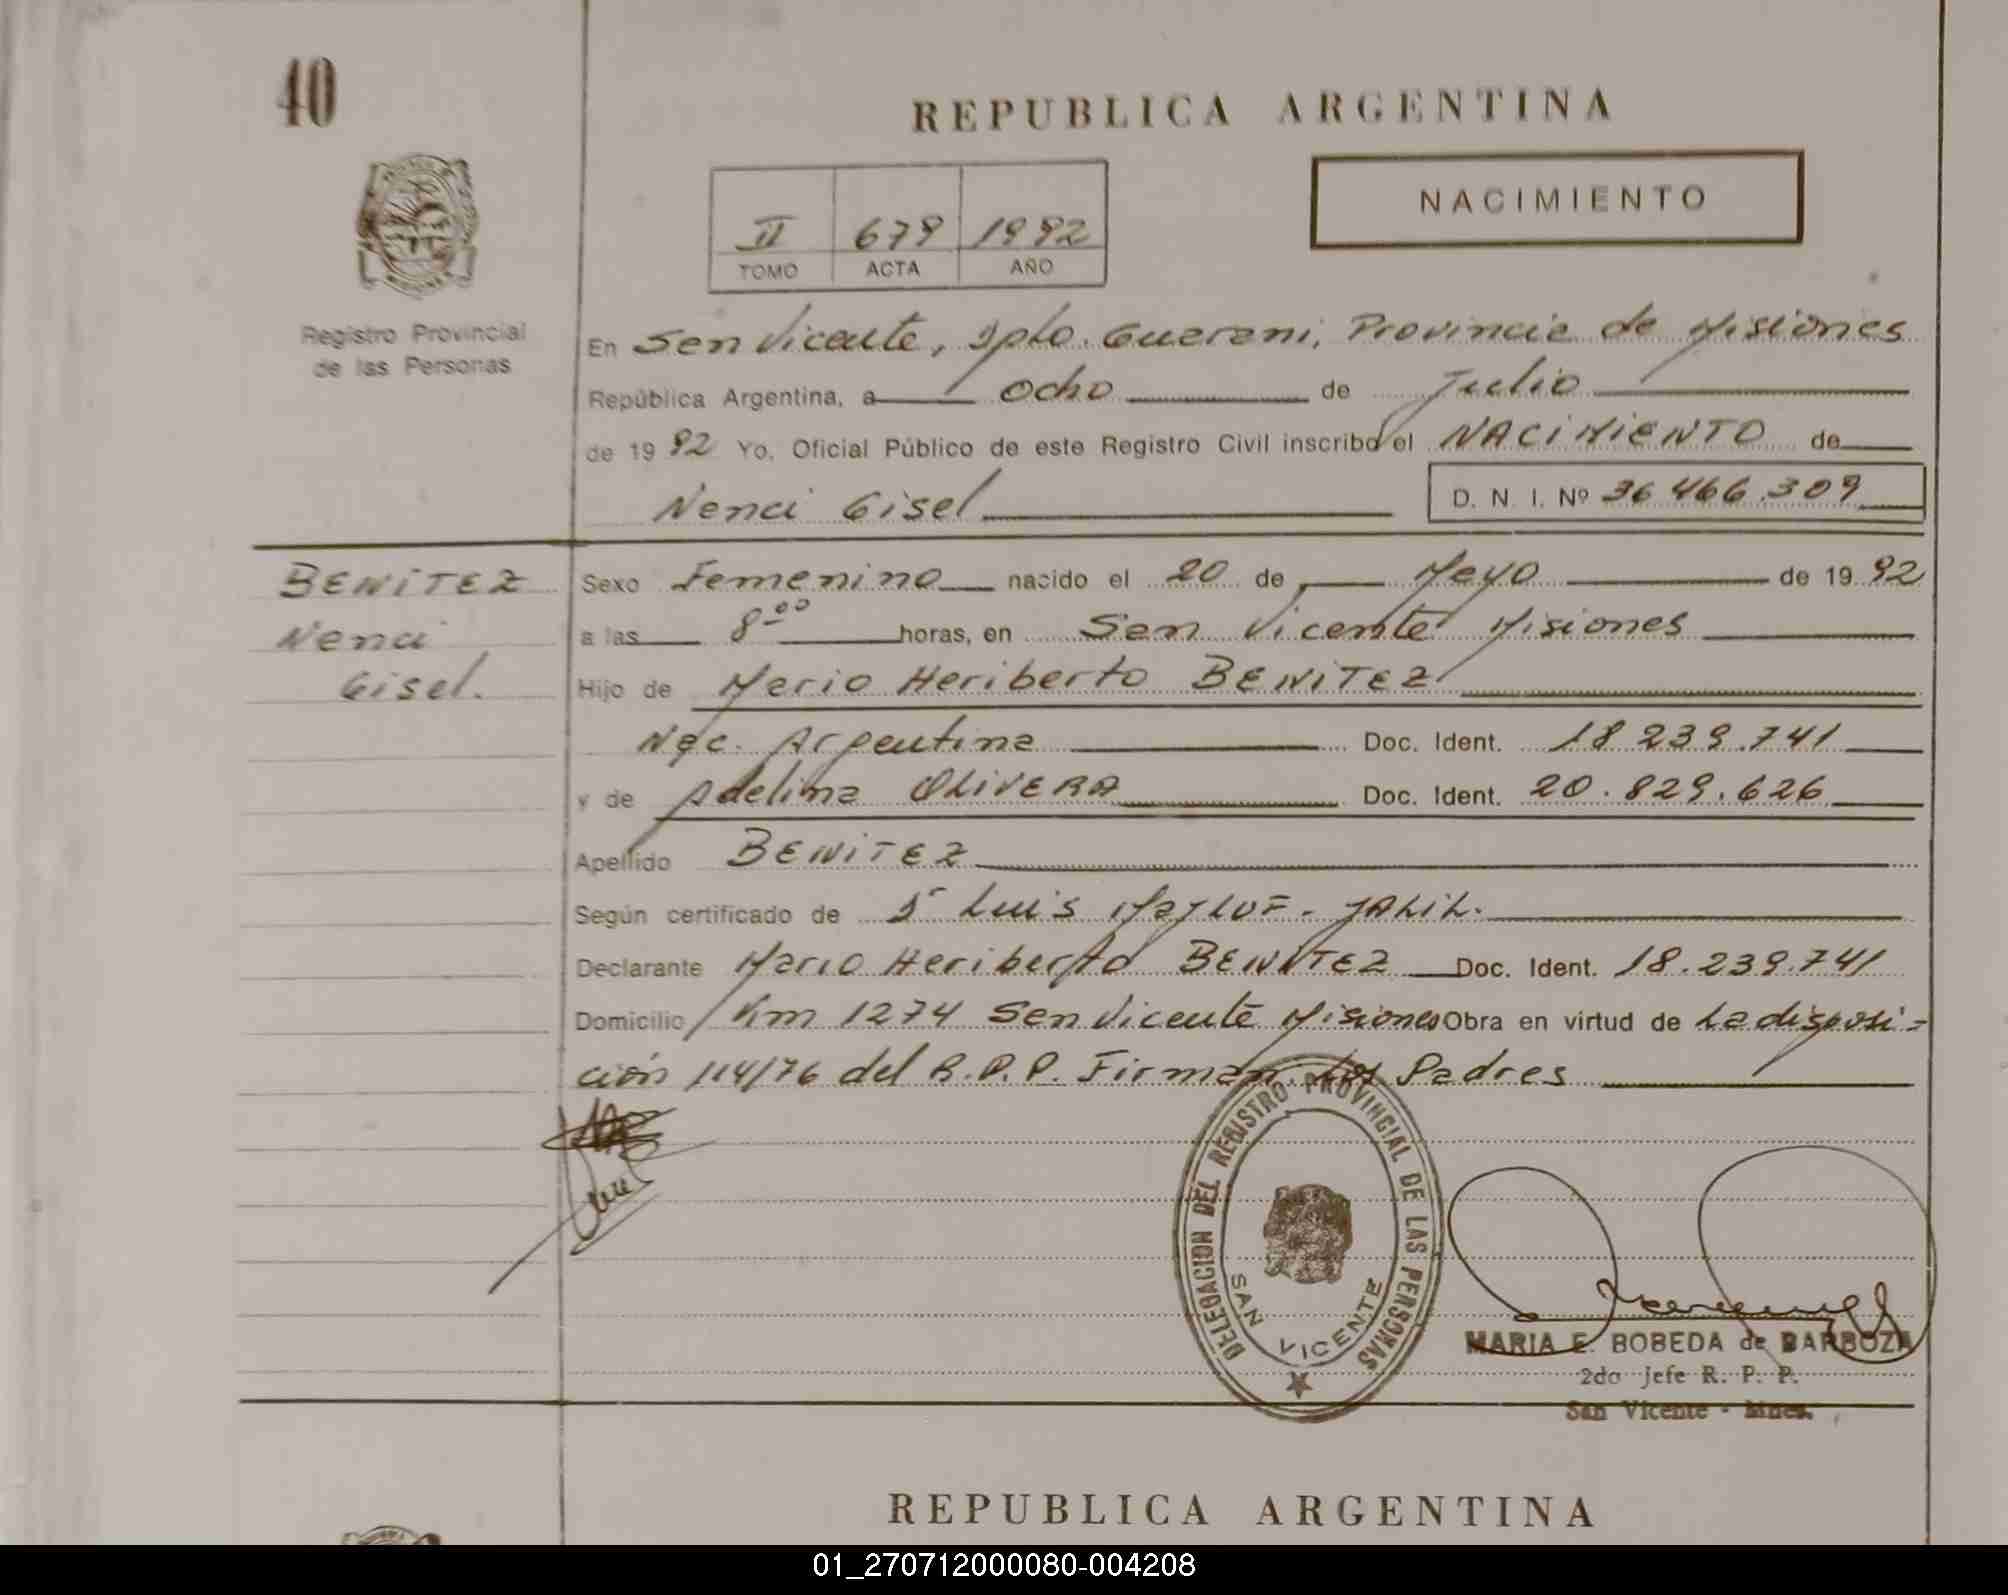 40
REPUBLICA ARGENTINA
NACIMIENTO
II 679 1992
TOMO ACTA AÑO
Registro Provincial
de las Personas
En San Vicente, Dpto. Guarani, Provincia de Misiones
República Argentina, a ocho de Julio
de 1992 Yo, Oficial Público de este Registro Civil inscribo el NACIMIENTO de
Nanci Gisel
D. N. I. Nº 36.466.309
BENITEZ
Nanci
Gisel.
Sexo Femenino nacido el 20 de Mayo de 1992
a las 8⁰⁰ horas, en San Vicente Misiones
Hijo de Mario Heriberto BENITEZ
Nac. Argentina Doc. Ident. 18.239.741
y de Adelina OLIVERA Doc. Ident. 20.829.626
Apellido BENITEZ
Según certificado de Dr Luis - JALIL.
Declarante Mario Heriberto BENITEZ Doc. Ident. 18.239.741
Domicilio Km 1274 San Vicente Misiones Obra en virtud de La disposi-
ción 114/76 del R.P.P. Firman los Padres
DELEGACION DEL REGISTRO PROVINCIAL DE LAS PERSONAS
SAN VICENTE
MARIA E. BOBEDA de BARBOZA
2do Jefe R. P. P.
San Vicente - Mnes.
REPUBLICA ARGENTINA
01_270712000080-004208